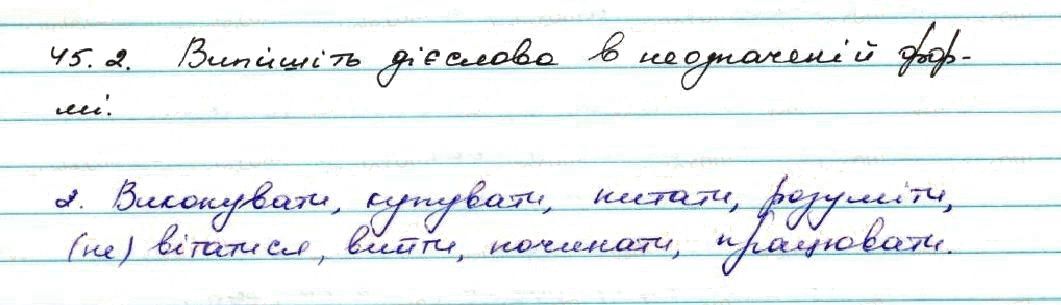 45.2. Випишіть дієслова в неозначеній фор-
мі.
2. Виконувати, купувати, питати, розуміти,
(не) вітатися, вийти, починати, працювати.